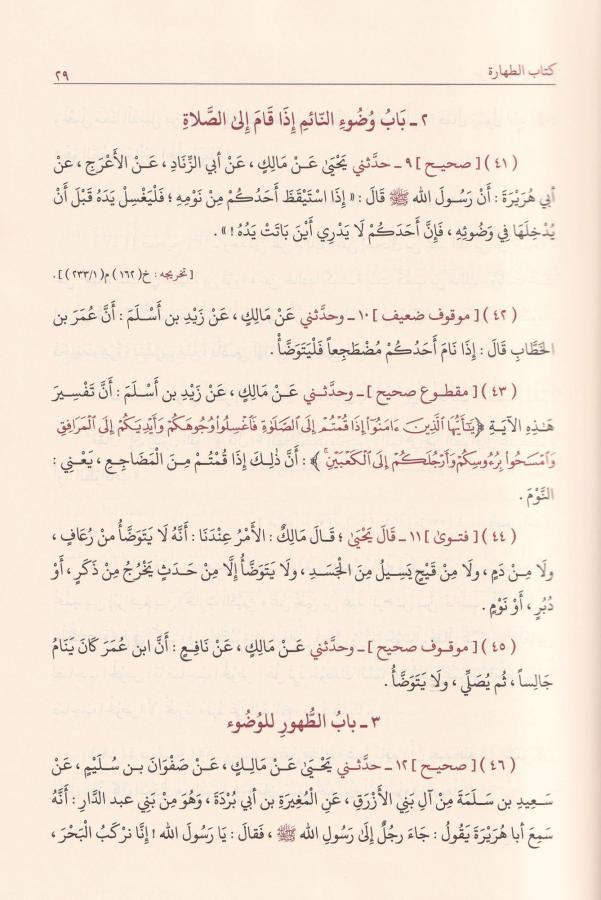 كتاب الطهارة ٢٩
٢ ـ بَابُ وُضُوءِ النّائمِ إِذَا قَامَ إِلىٰ الصَّلاةِ
(٤١) [ صحيح ] ٩ ـ حدّثني يَحْيَىٰ عَنْ مَالِكٍ ، عَنْ أَبي الزِّنَادِ ، عَنِ الأَعْرَجِ ، عنْ
أبي هُرَيْرَةَ : أنْ رَسُولَ الله ﷺ قَالَ : « إِذَا اسْتَيْقَظَ أَحَدُكُمْ مِنْ نَوْمِهِ ؛ فَلْيَغْسِلْ يَدَهُ قَبْلَ أَنْ
يُدْخِلَهَا فِي وَضُوئِهِ ، فَإِنَّ أَحَدَكُمْ لَا يَدْرِي أَيْنَ بَاتَتْ يَدُهُ ! » .
[ تخريجه : خ(١٦٢) م(٢٣٣/١) ] .
(٤٢) [ موقوف ضعيف ] ١٠ ـ وحدّثني عَنْ مَالِكٍ ، عَنْ زَيْدِ بن أَسْلَمَ : أَنَّ عُمَرَ بن
الخَطَّابِ قَالَ : إِذَا نَامَ أَحَدُكُمْ مُضْطَجِعاً فَلْيَتَوَضَّأْ .
(٤٣) [ مقطوع صحيح ] ـ وحدّثني عَنْ مَالِكٍ ، عَنْ زَيْدِ بن أَسْلَمَ : أَنَّ تَفْسِيرَ
هَذِهِ الآيَةِ ﴿يَٰٓأَيُّهَا ٱلَّذِينَ ءَامَنُوٓا۟ إِذَا قُمْتُمْ إِلَى ٱلصَّلَوٰةِ فَٱغْسِلُوا۟ وُجُوهَكُمْ وَأَيْدِيَكُمْ إِلَى ٱلْمَرَافِقِ
وَٱمْسَحُوا۟ بِرُءُوسِكُمْ وَأَرْجُلَكُمْ إِلَى ٱلْكَعْبَيْنِ ۚ﴾ : أَنَّ ذٰلِكَ إِذَا قُمْتُمْ مِنَ الْمَضَاجِعِ ، يَعْنِي :
النَّوْمَ .
(٤٤) [ فتوىٰ ] ١١ ـ قَالَ يَحْيَىٰ ؛ قَالَ مَالِكٌ : الأَمْرُ عِنْدَنَا : أَنَّهُ لَا يَتَوَضَّأُ منْ رُعَافٍ ،
ولَا مِنْ دَمٍ ، ولَا مِنْ قَيْحٍ يَسِيلُ مِنَ الْجَسَدِ ، ولَا يَتَوَضَّأُ إِلَّا مِنْ حَدَثٍ يَخْرُجُ مِنْ ذَكَرٍ ، أَوْ
دُبُرٍ ، أَوْ نَوْمٍ .
(٤٥) [ موقوف صحيح ] ـ وحدّثني عَنْ مَالِكٍ ، عَنْ نَافِعٍ : أَنَّ ابن عُمَرَ كَانَ يَنَامُ
جَالِساً ، ثُم يُصَلِّي ، ولَا يَتَوَضَّأُ .
٣ ـ بابُ الطُّهورِ للوُضُوء
(٤٦) [ صحيح ] ١٢ ـ حدّثني يَحْيَىٰ عَنْ مَالِكٍ ، عَنْ صَفْوَانَ بن سُلَيْمٍ ، عَنْ
سَعِيدِ بن سَلَمَةَ مِنْ آلِ بَنِي الأَزْرَقِ ، عَنِ الْمُغِيرَةِ بن أبي بُرْدَةَ ، وَهُوَ مِنْ بَنِي عبد الدَّارِ : أَنَّهُ
سَمِعَ أبا هُرَيْرَةَ يَقُولُ : جَاءَ رجُلٌ إِلَىٰ رَسُولِ الله ﷺ ، فَقالَ : يَا رَسُولَ الله ! إِنَّا نرْكَبُ الْبَحْرَ ،